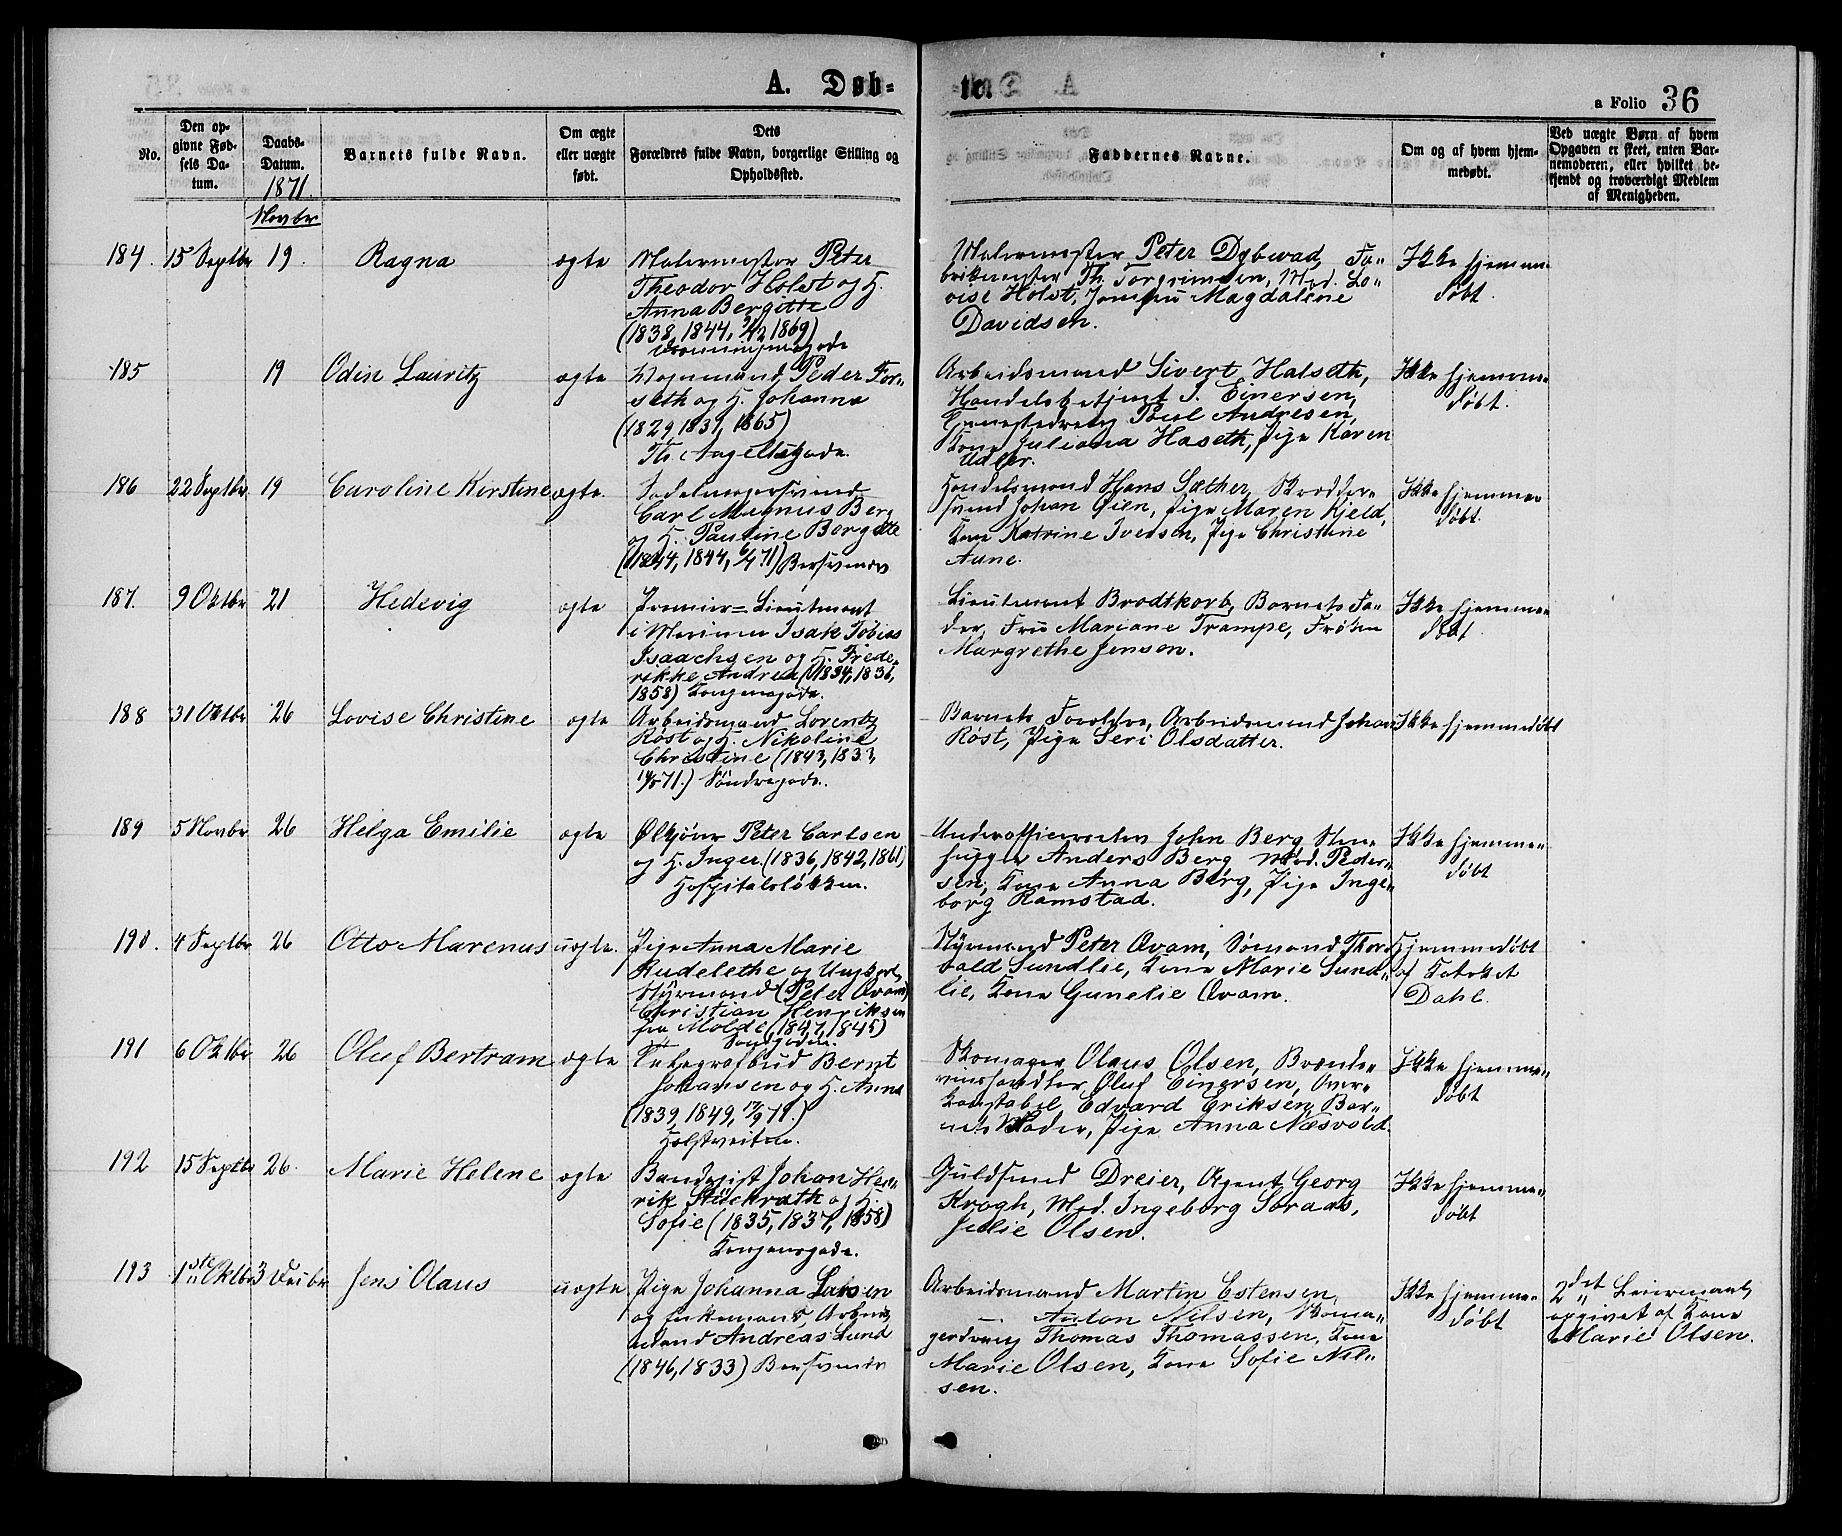 A. Døb-
te.
a Folio 36
No.
Den op-
givne Fød-
sels Da-
tum.
Daabs-
Datum.
1871.
Novbr
Barnets fulde Navn.
Om ægte
eller uægte
født.
Dets
Forældres fulde Navn, borgerlige Stilling og
Opholdssted.
Faddernes Navne.
Om og af hvem hjem-
medøbt.
Ved uægte Børn af hvem
Opgaven er skeet, enten Bar-
nemoderen, eller hvilket be-
kjendt og troværdigt Medlem
af Menigheden.
184. 15 Septbr 19. Ragna ægte
Malermester Peter
Theodor Holst og H.
Anna Bergitte
(1838, 1844, 1869)
Malermester Peter Dybwad, Fa-
brikmester Th. Torgrimsen, Mad. Lo-
vise Holst, Jomfru Magdalene
Davidsen.
Ikke hjemme-
døbt.
185 19 Odin Lauritz ægte
Vognmand Peder For-
seth og H. Johanna
(1829, 1831, 1865)
Th. Angellsgade.
Arbeidsmand Sivert Halseth,
Handelsbetjent J. Einersen,
Poul Andresen,
Kone Juliana Haseth, Pige Karen
Udler.
Ikke hjemme-
døbt.
186 22 Septbr 19 Caroline Kirstine ægte.
Sadelmagersvend
Carl Magnus Berg
og H. Pauline Bergitte
(1844, 1844, 6/4 71) Bersvendv
Handelsmand Hans Sæther, Skrædder-
svend Johan Øien, Pige Maren Kjeld,
Kone Katrine Iversen, Pige Christine
Aune.
Ikke hjemme-
døbt.
187. 9 Oktbr 21 Hedevig ægte
Premier-Lieutenant
i Marinen Isak Tobias
Isaachsen og H. Frede-
rikke Andrea (1834, 1836,
1858) Kongensgade.
Lieutenant Brodtkorb, Barnets Fa-
der, Fru Mariane Trampe, Frøken
Margrethe Jensen.
Ikke hjemme-
døbt.
188 31 Oktbr 26 Lovise Christine ægte
Arbeidsmand Lorentz
Røst og H. Nikoline
Christine (1843, 1833,
71.) Søndregade.
Barnets Forældre, Arbeidsmand Johan
Røst, Pige Seri Olsdatter.
Ikke hjemmedøbt
189 5 Novbr 26 Helga Emilie ægte
Ølkjører Peter Carlsen
og H. Inger (1836, 1842, 1861)
Hospitalsløkken.
John Berg, Sten-
hugger Anders Berg, Mad. Peder-
sen, Kone Anna Berg, Pige Inge-
borg Ramstad.
Ikke hjemme-
døbt
190. 4 Septbr 26 Otto Marenus uægte.
Pige Anna Marie
Rudelethe og Ungkarl,
Styrmand (Peter Qvam)
Christian Henriksen
fra Molde (1847, 1845)
Sandgaden.
Styrmand Peter Qvam, Sømand Thor-
vald Sundlie, Kone Marie Sund-
lie, Kone Gunelie Qvam.
Hjemmedøbt
af Kateket
Dahl.
191 6 Oktbr 26 Oluf Bertram ægte
Telegrafbud Bernt
Johansen og H. Anna
(1839, 1849, 17/9 71.)
Holstveiten.
Skomager Olaus Olsen, Brænde-
vinshandler Oluf Einersen, Over-
konstabel Edvard Eriksen, Bar-
nets Moder, Pige Anna Næsvold.
Ikke hjemme-
døbt
192 15 Septbr 26. Marie Helene ægte
Bandagist Johan Hen-
rik Stückrath og H.
Sofie (1835, 1837, 1858)
Kongensgade.
Guldsmed Dreier, Agent Georg
Krogh, Mad. Ingeborg Soraas,
Julie Olsen.
Ikke hjemme-
døbt
193 1ste Oktbr 3 Decbr Jens Olaus uægte
Pige Johanna Larsen
og Enkemand, Arbeids-
mand Andreas Lund
(1846, 1833) Bersvendv
Arbeidsmand Martin Estensen,
— Anton Nilsen, Skoma-
gerdreng Thomas Thomassen, Kone
Marie Olsen, Kone Sofie Nil-
sen.
Ikke hjemme-
døbt
2det Leiermaal,
opgivet af Kone
Marie Olsen.